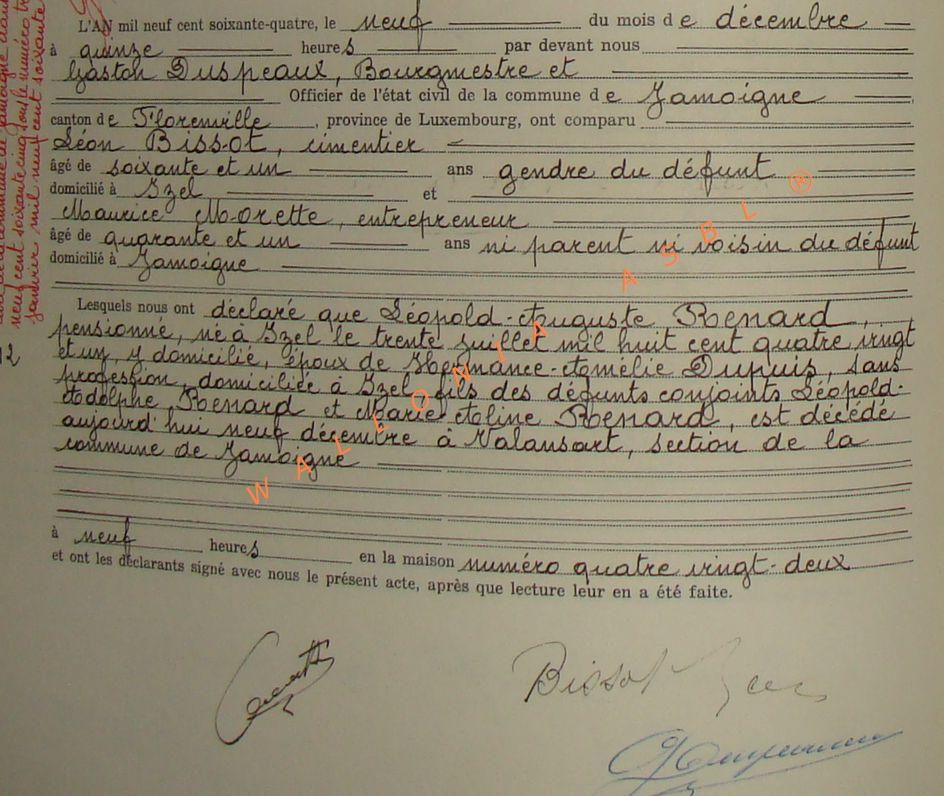 L'AN mil neuf cent soixante-quatre, le neuf du mois de décembre
à quinze heures par devant nous
Gaston Duspeaux, Bourgmestre et
Officier de l'état civil de la commune de Jamoigne
canton de Florenville, province de Luxembourg, ont comparu
Léon Bissot, cimentier
âgé de soixante et un ans gendre du défunt
domicilié à Izel et
Maurice Morette, entrepreneur
âgé de quarante et un ans ni parent ni voisin du défunt
domicilié à Jamoigne
Lesquels nous ont déclaré que Léopold-Auguste Renard,
pensionné, né à Izel le trente juillet mil huit cent quatre vingt
et un, y domicilié, époux de Hermance-Amélie Dupuis, sans
profession, domiciliée à Izel, fils des défunts conjoints Léopold-
Adolphe Renard et Marie Aline Renard, est décédé
aujourd'hui neuf décembre à Valansart, section de la
commune de Jamoigne
à neuf heures en la maison numéro quatre vingt-deux
et ont les déclarants signé avec nous le présent acte, après que lecture leur en a été faite.
Bissot
WALLONIA ASBL ®
neuf cent soixante cinq sous le numéro
janvier mil neuf cent soixante
12